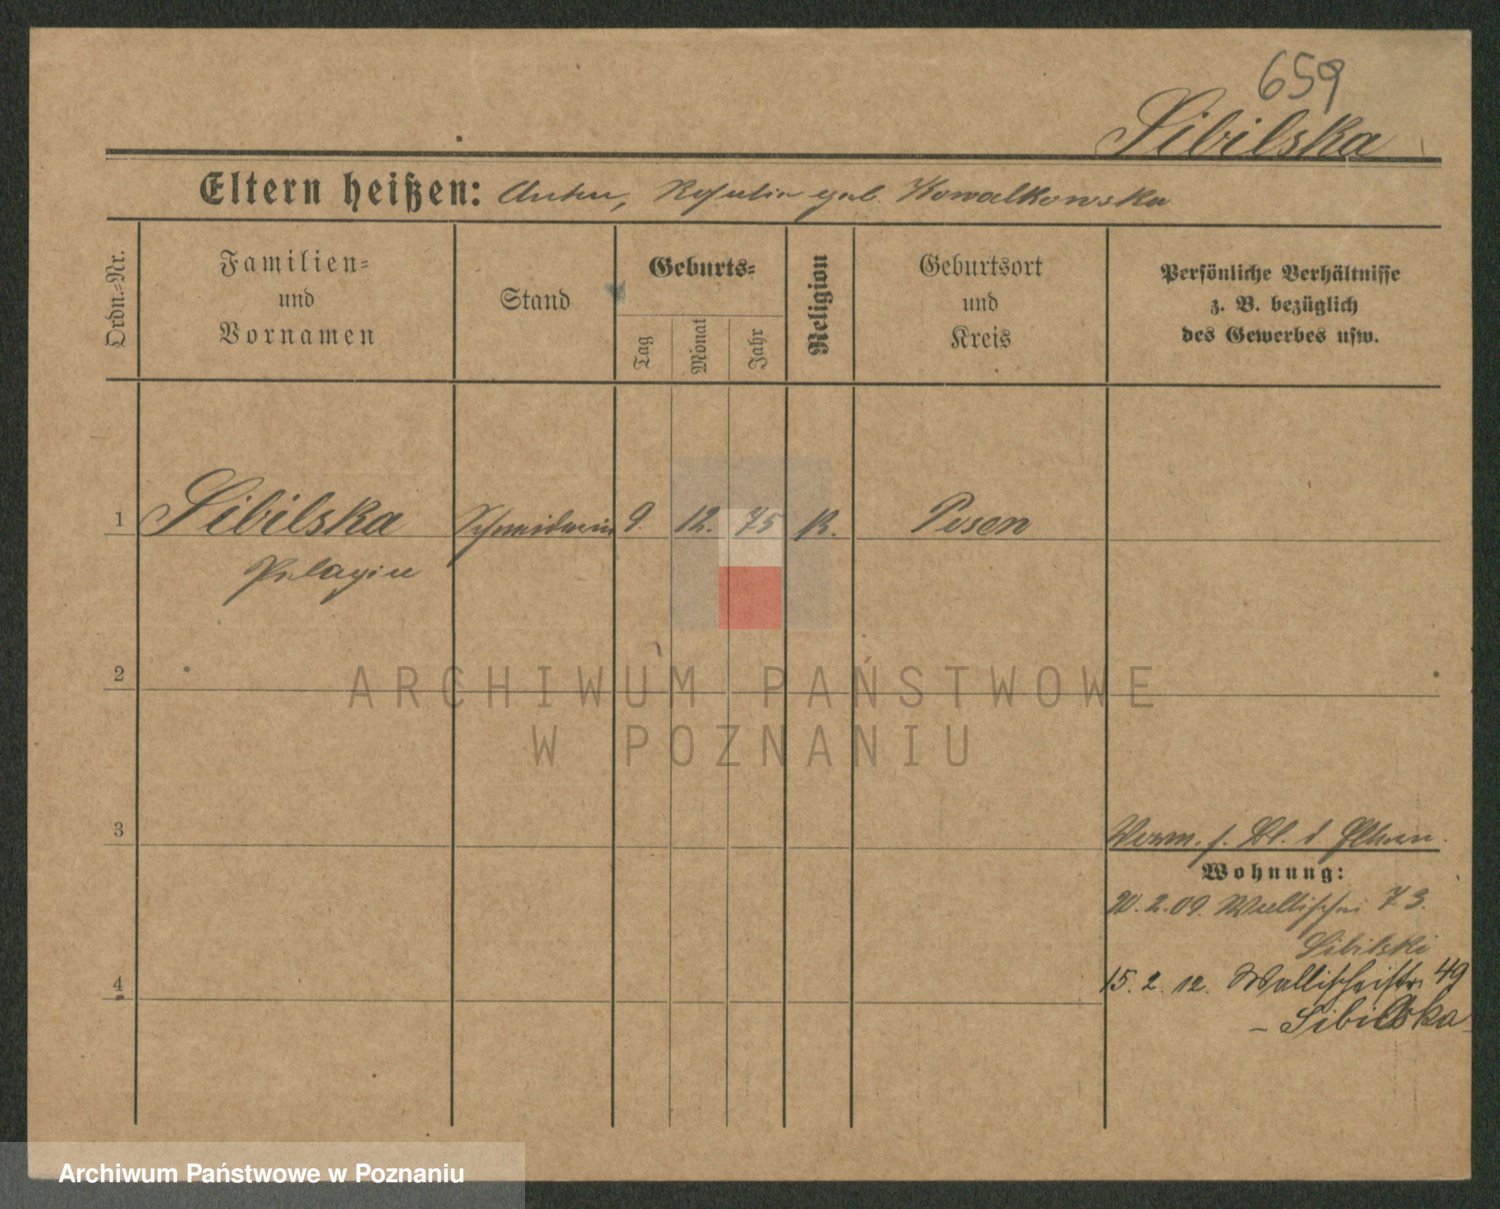 659
Sibilska
Eltern heißen: Anton, Rosalia geb. Kowalkowska
Ordn.-Nr.
Familien-
und
Vornamen
Stand
Geburts-
Tag
Monat
Jahr
Religion
Geburtsort
und
Kreis
Persönliche Verhältnisse
z. B. bezüglich
des Gewerbes usw.
1 Sibilska Schneiderin 9. 12. 75 K. Posen
Pelagia
2
3
Verm. s. Bl. d Eltern.
Wohnung:
20.2.09. Wallischei 73.
Sibilski
4
15. 2. 12. Wallischeistr. 49
- Sibilska -
ARCHIWUM PAŃSTWOWE
W POZNANIU
Archiwum Państwowe w Poznaniu